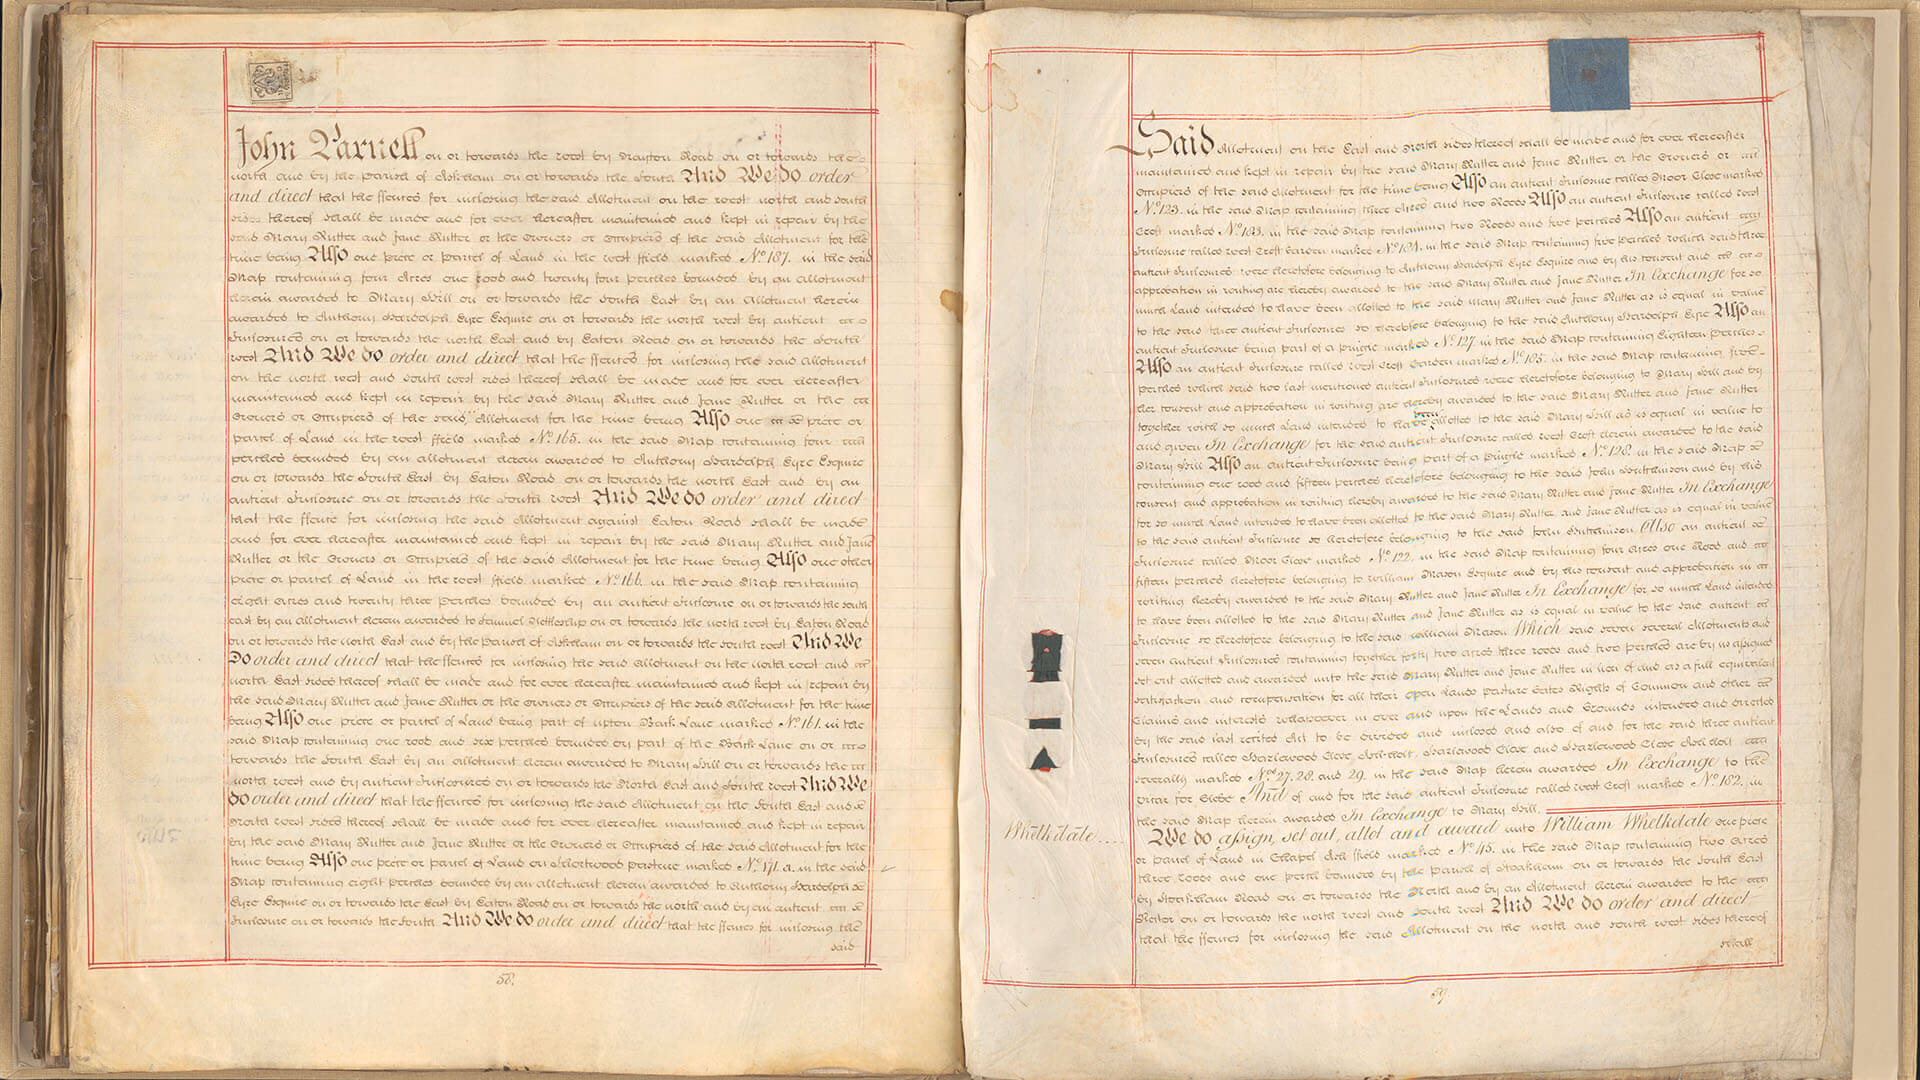 John Parnell on or towards the west by Drayton Road on or towards the
north and by the parish of Askham on or towards the South And We do order
and direct that the ffences for inclosing the said Allotment on the west north and south
sides thereof shall be made and for ever hereafter maintained and kept in repair by the
said Mary Rutter and Jane Rutter or the Owners or Occupiers of the said Allotment for the
time being Also one piece or parcel of Land in the west ffield marked No. 187. in the said
Map containing four Acres one rood and twenty four perches bounded by an allotment
herein awarded to Mary Hill on or towards the South East by an Allotment herein
awarded to Anthony Hardolph Eyre Esquire on or towards the north west by antient
Inclosures on or towards the north East and by Eaton Road on or towards the South
west And We do order and direct that the ffences for inclosing the said Allotment
on the north west and south west sides thereof shall be made and for ever hereafter
maintained and kept in repair by the said Mary Rutter and Jane Rutter or the
Owners or Occupiers of the said Allotment for the time being Also one piece or
parcel of Land in the west ffield marked No. 165. in the said Map containing four
perches bounded by an allotment herein awarded to Anthony Hardolph Eyre Esquire
on or towards the South East by Eaton Road on or towards the north East and by an
antient Inclosure on or towards the South west And We do order and direct
that the ffence for inclosing the said Allotment against Eaton Road shall be made
and for ever hereafter maintained and kept in repair by the said Mary Rutter and Jane
Rutter or the Owners or Occupiers of the said Allotment for the time being Also one other
piece or parcel of Land in the west ffield marked No. 166. in the said Map containing
eight acres and twenty three perches bounded by an antient Inclosure on or towards the south
east by an allotment herein awarded to Samuel Nettleship on or towards the north west by Eaton Road
on or towards the north East and by the Parish of Askham on or towards the South west And We
Do order and direct that the ffences for inclosing the said Allotment on the north west and
north East sides thereof shall be made and for ever hereafter maintained and kept in repair by
the said Mary Rutter and Jane Rutter or the Owners or Occupiers of the said Allotment for the time
being Also one piece or parcel of Land being part of upton Back Lane marked No. 161. in the
said Map containing one rood and six perches bounded by part of the Back Lane on or
towards the South East by an allotment herein awarded to Mary Hill on or towards the
north west and by antient Inclosures on or towards the North East and South west And We
do order and direct that the ffences for inclosing the said Allotment on the South East and
North west sides thereof shall be made and for ever hereafter maintained and kept in repair
by the said Mary Rutter and Jane Rutter or the Owners or Occupiers of the said Allotment for the
time being Also one piece or parcel of Land on Shortwood pasture marked No. 171.a. in the said
Map containing eight perches bounded by an allotment herein awarded to Anthony Hardolph
Eyre Esquire on or towards the East by Eaton Road on or towards the north and by an antient
Inclosure on or towards the South And We do order and direct that the ffences for inclosing the
said
58.
Said Allotment on the East and North sides thereof shall be made and for ever hereafter
maintained and kept in repair by the said Mary Rutter and Jane Rutter or the Owners or
Occupiers of the said Allotment for the time being Also an antient Inclosure called Moor Close marked
No. 123. in the said Map containing three Acres and two Roods Also an antient Inclosure called west
Croft marked No. 183. in the said Map containing two Roods and five perches Also an antient
Inclosure called west Croft Garden marked No. 184. in the said Map containing five perches which said three
antient Inclosures were heretofore belonging to Anthony Hardolph Eyre Esquire and by his consent and
approbation in writing are hereby awarded to the said Mary Rutter and Jane Rutter In Exchange for so
much Land intended to have been allotted to the said Mary Rutter and Jane Rutter as is equal in value
to the said three antient Inclosures so heretofore belonging to the said Anthony Hardolph Eyre Also an
antient Inclosure being part of a pingle marked No. 127. in the said Map containing Eighteen perches
Also an antient Inclosure called west Croft Garden marked No. 185. in the said Map containing five
perches which said two last mentioned antient Inclosures were heretofore belonging to Mary Hill and by
her consent and approbation in writing are hereby awarded to the said Mary Rutter and Jane Rutter
together with so much Land intended to have been allotted to the said Mary Hill as is equal in value to
and given In Exchange for the said antient Inclosure called west Croft herein awarded to the said
Mary Hill Also an antient Inclosure being part of a pingle marked No. 128. in the said Map
containing one rood and fifteen perches heretofore belonging to the said John Hutchinson and by his
consent and approbation in writing hereby awarded to the said Mary Rutter and Jane Rutter In Exchange
for so much Land intended to have been allotted to the said Mary Rutter and Jane Rutter as is equal in value
to the said antient Inclosure so heretofore belonging to the said John Hutchinson. Also an antient
Inclosure called Moor Close marked No. 122. in the said Map containing four acres one Rood and
fifteen perches heretofore belonging to William Mason Esquire and by his consent and approbation in
writing hereby awarded to the said Mary Rutter and Jane Rutter In Exchange for so much Land intended
to have been allotted to the said Mary Rutter and Jane Rutter as is equal in value to the said antient
Inclosure so heretofore belonging to the said William Mason Which said seven several Allotments and
seven antient Inclosures containing together forty two acres three roods and two perches are by us assigned
set out allotted and awarded unto the said Mary Rutter and Jane Rutter in lieu of and as a full equivalent
satisfaction and compensation for all their open Lands pasture Gates Rights of Common and other
Claims and interests whatsoever in over and upon the Lands and Grounds intended and directed
by the said last recited Act to be divided and inclosed and also of and for the said three antient
Inclosures called Hazlewood Close Holt, Hazlewood Close and Hazlewood Close Holt
severally marked Nos. 27. 28. and 29. in the said Map herein awarded In Exchange to the
vicar for Glebe And of and for the said antient Inclosure called west Croft marked No. 182. in
the said Map herein awarded In Exchange to Mary Hill.
Whelkdale....
We do assign, set out, allot and award unto William Whelkdale one piece
or parcel of Land in Chapel Holt ffield marked No. 45. in the said Map containing two Acres
three roods and one perch bounded by the parish of Stokeham on or towards the South East
by Stokeham Road on or towards the North and by an Allotment herein awarded to the
Rector on or towards the north west and South west And We do order and direct
that the ffences for inclosing the said Allotment on the north and south west sides thereof
shall
59